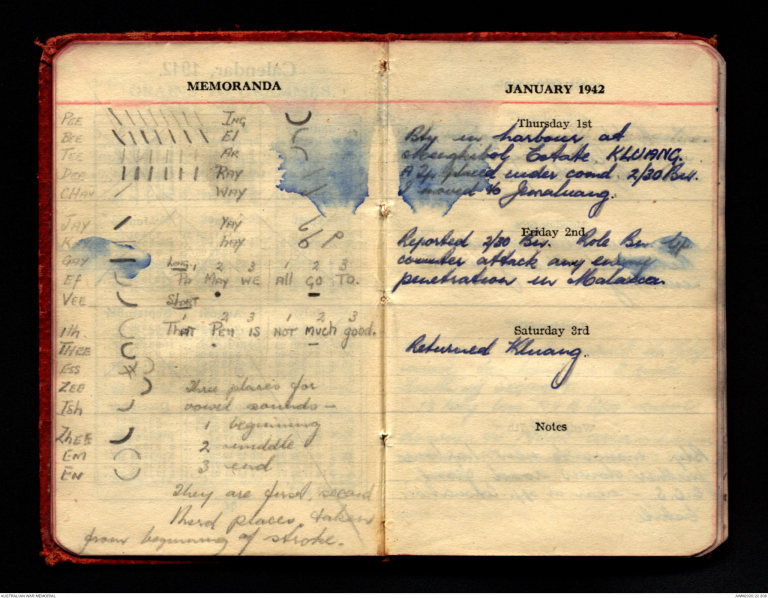 MEMORANDA
PEE ING
BEE El
TEE AR
DEE RAY
CHAY WAY
JAY YAY
KAY HAY
GAY Long 1 2 3 1 2 3
Ef PA MAY WE All GO TO.
VEE SHORT
1 2 3 1 2 3
Ith THAT PEN IS NOT Much good.
THEE
ESS
ZEE Three places for
Ish vowel sounds –
ZHEE 1 beginning
EM 2 middle
EN 3 end
They are first, second
third places, taken
from beginning of stroke.
JANUARY 1942
Thursday 1st
Bty in harbour at
Estate, KLUANG.
A Tp placed under comd. 2/30 Bn.
I moved to Jemaluang.
Friday 2nd
Reported 2/30 Bn. Role Bn
counter attack any enemy
penetration in Malacca.
Saturday 3rd
Returned Kluang.
Notes
AUSTRALIAN WAR MEMORIAL